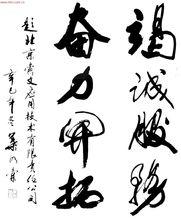 竭诚服务
奋力开拓
题北京爱义应用技术有限责任公司
辛巳年冬